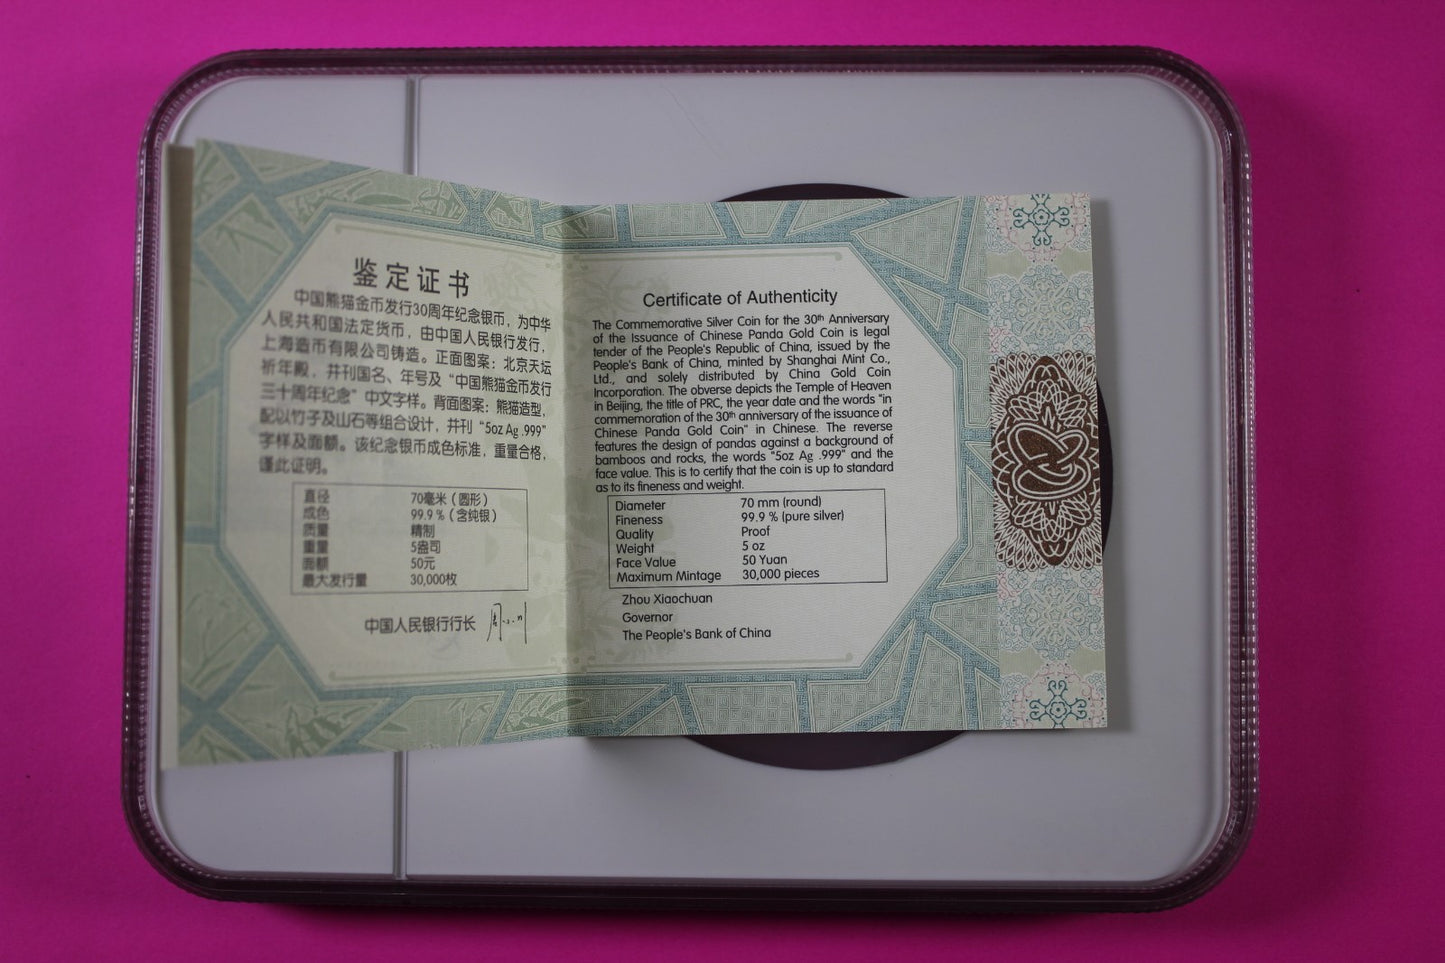 鉴定证书
中国熊猫金币发行30周年纪念银币，为中华
人民共和国法定货币，由中国人民银行发行，
上海造币有限公司铸造。正面图案：北京天坛
祈年殿，并刊国名、年号及“中国熊猫金币发行
三十周年纪念”中文字样。背面图案：熊猫造型，
配以竹子及山石等组合设计，并刊“5oz Ag .999”
字样及面额。该纪念银币成色标准，重量合格，
谨此证明。
直径 70毫米（圆形）
成色 99.9％（含纯银）
质量 精制
重量 5盎司
面额 50元
最大发行量 30,000枚
中国人民银行行长
Certificate of Authenticity
The Commemorative Silver Coin for the 30th Anniversary
of the Issuance of Chinese Panda Gold Coin is legal
tender of the People's Republic of China, issued by the
People's Bank of China, minted by Shanghai Mint Co.,
Ltd., and solely distributed by China Gold Coin
Incorporation. The obverse depicts the Temple of Heaven
in Beijing, the title of PRC, the year date and the words "in
commemoration of the 30th anniversary of the issuance of
Chinese Panda Gold Coin" in Chinese. The reverse
features the design of pandas against a background of
bamboos and rocks, the words "5oz Ag .999" and the
face value. This is to certify that the coin is up to standard
as to its fineness and weight.
Diameter 70 mm (round)
Fineness 99.9 % (pure silver)
Quality Proof
Weight 5 oz
Face Value 50 Yuan
Maximum Mintage 30,000 pieces
Zhou Xiaochuan
Governor
The People's Bank of China